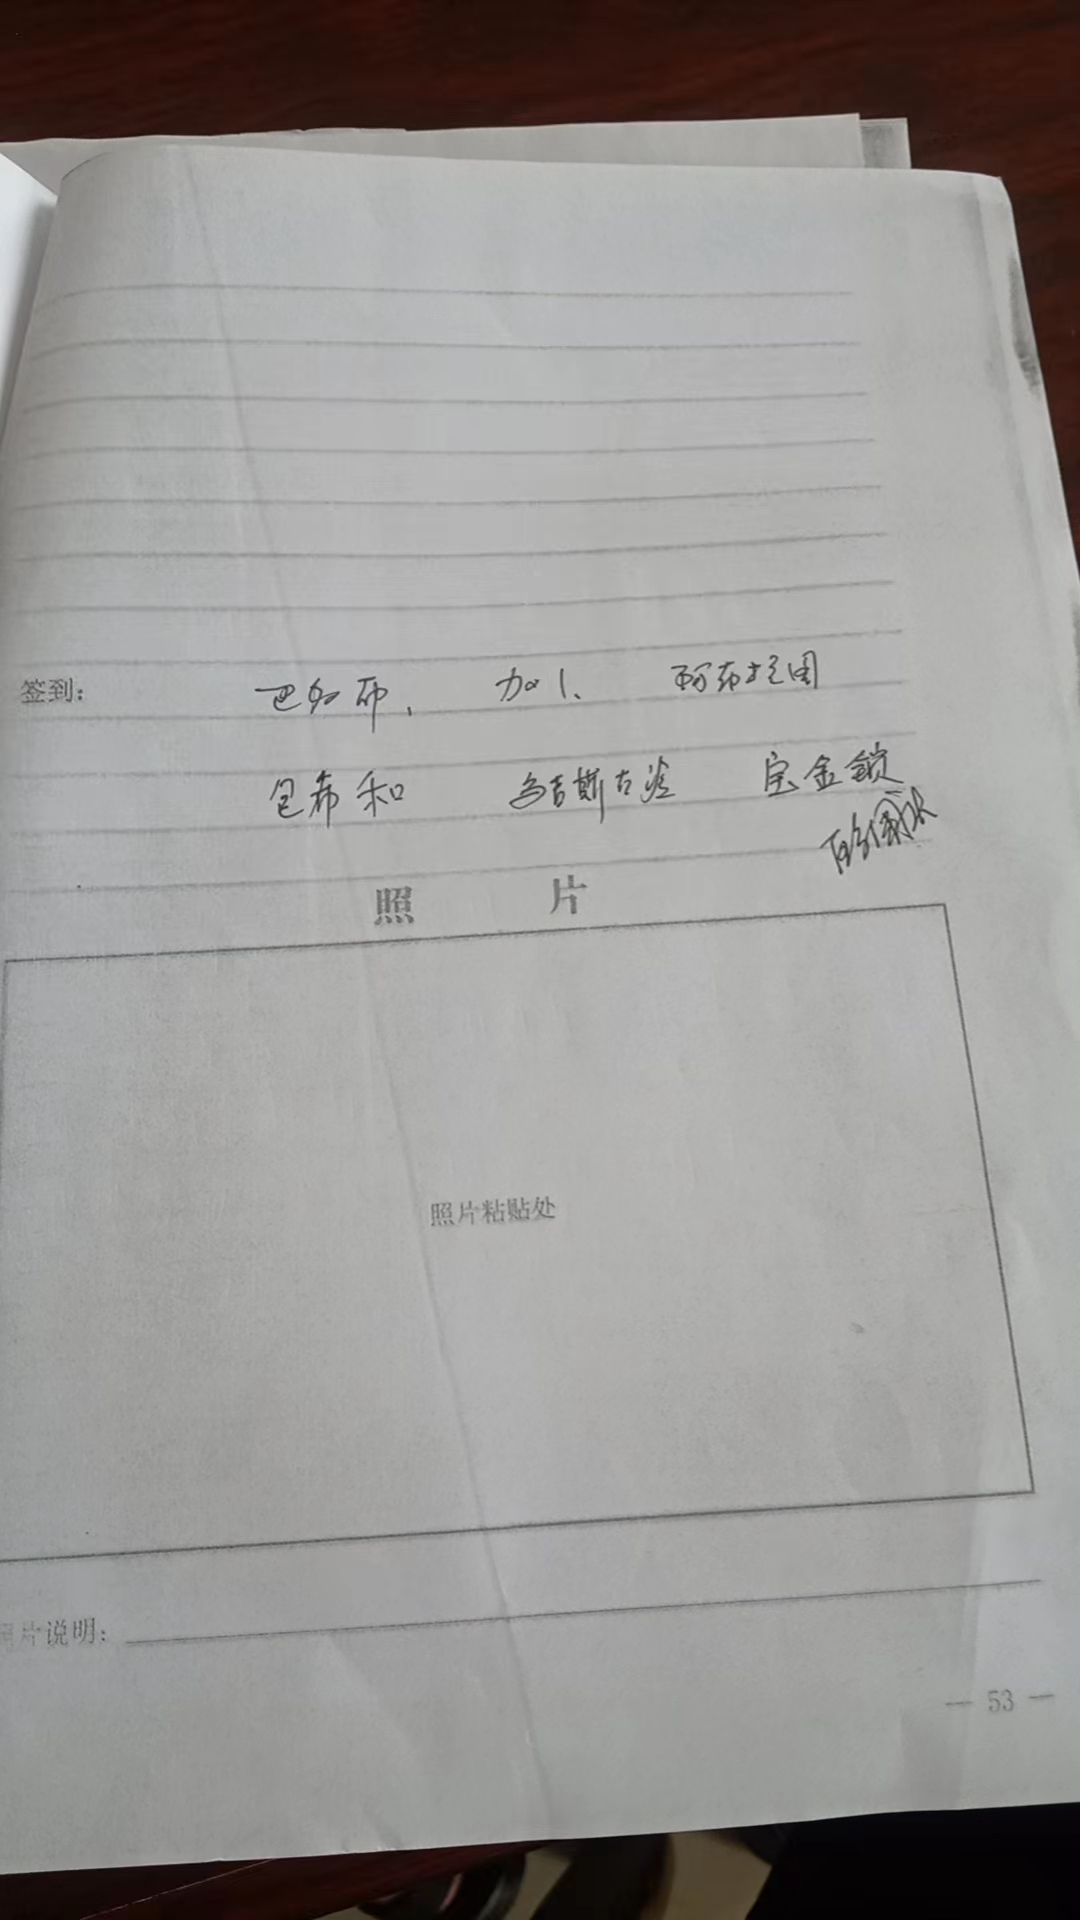 签到： 巴如布、 加卜、 阿布拉图
包希和 乌吉斯古冷 宝金锁
照 片
照片粘贴处
照片说明：
— 53 —